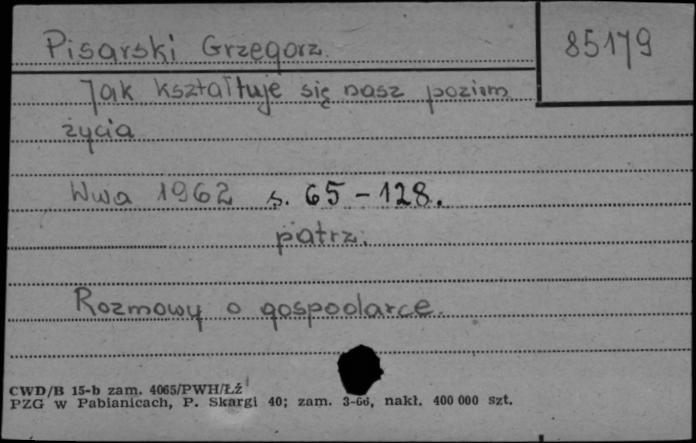 Pisarski Grzegorz
85179
Jak kształtuje się nasz poziom
życia
Wwa 1962 s. 65-128.
patrz:
Rozmowy o gospodarce.
CWD/B 15-b zam. 4065/PWH/Łź
PZG w Pabianicach, P. Skargi 40; zam. 3-66, nakł. 400 000 szt.